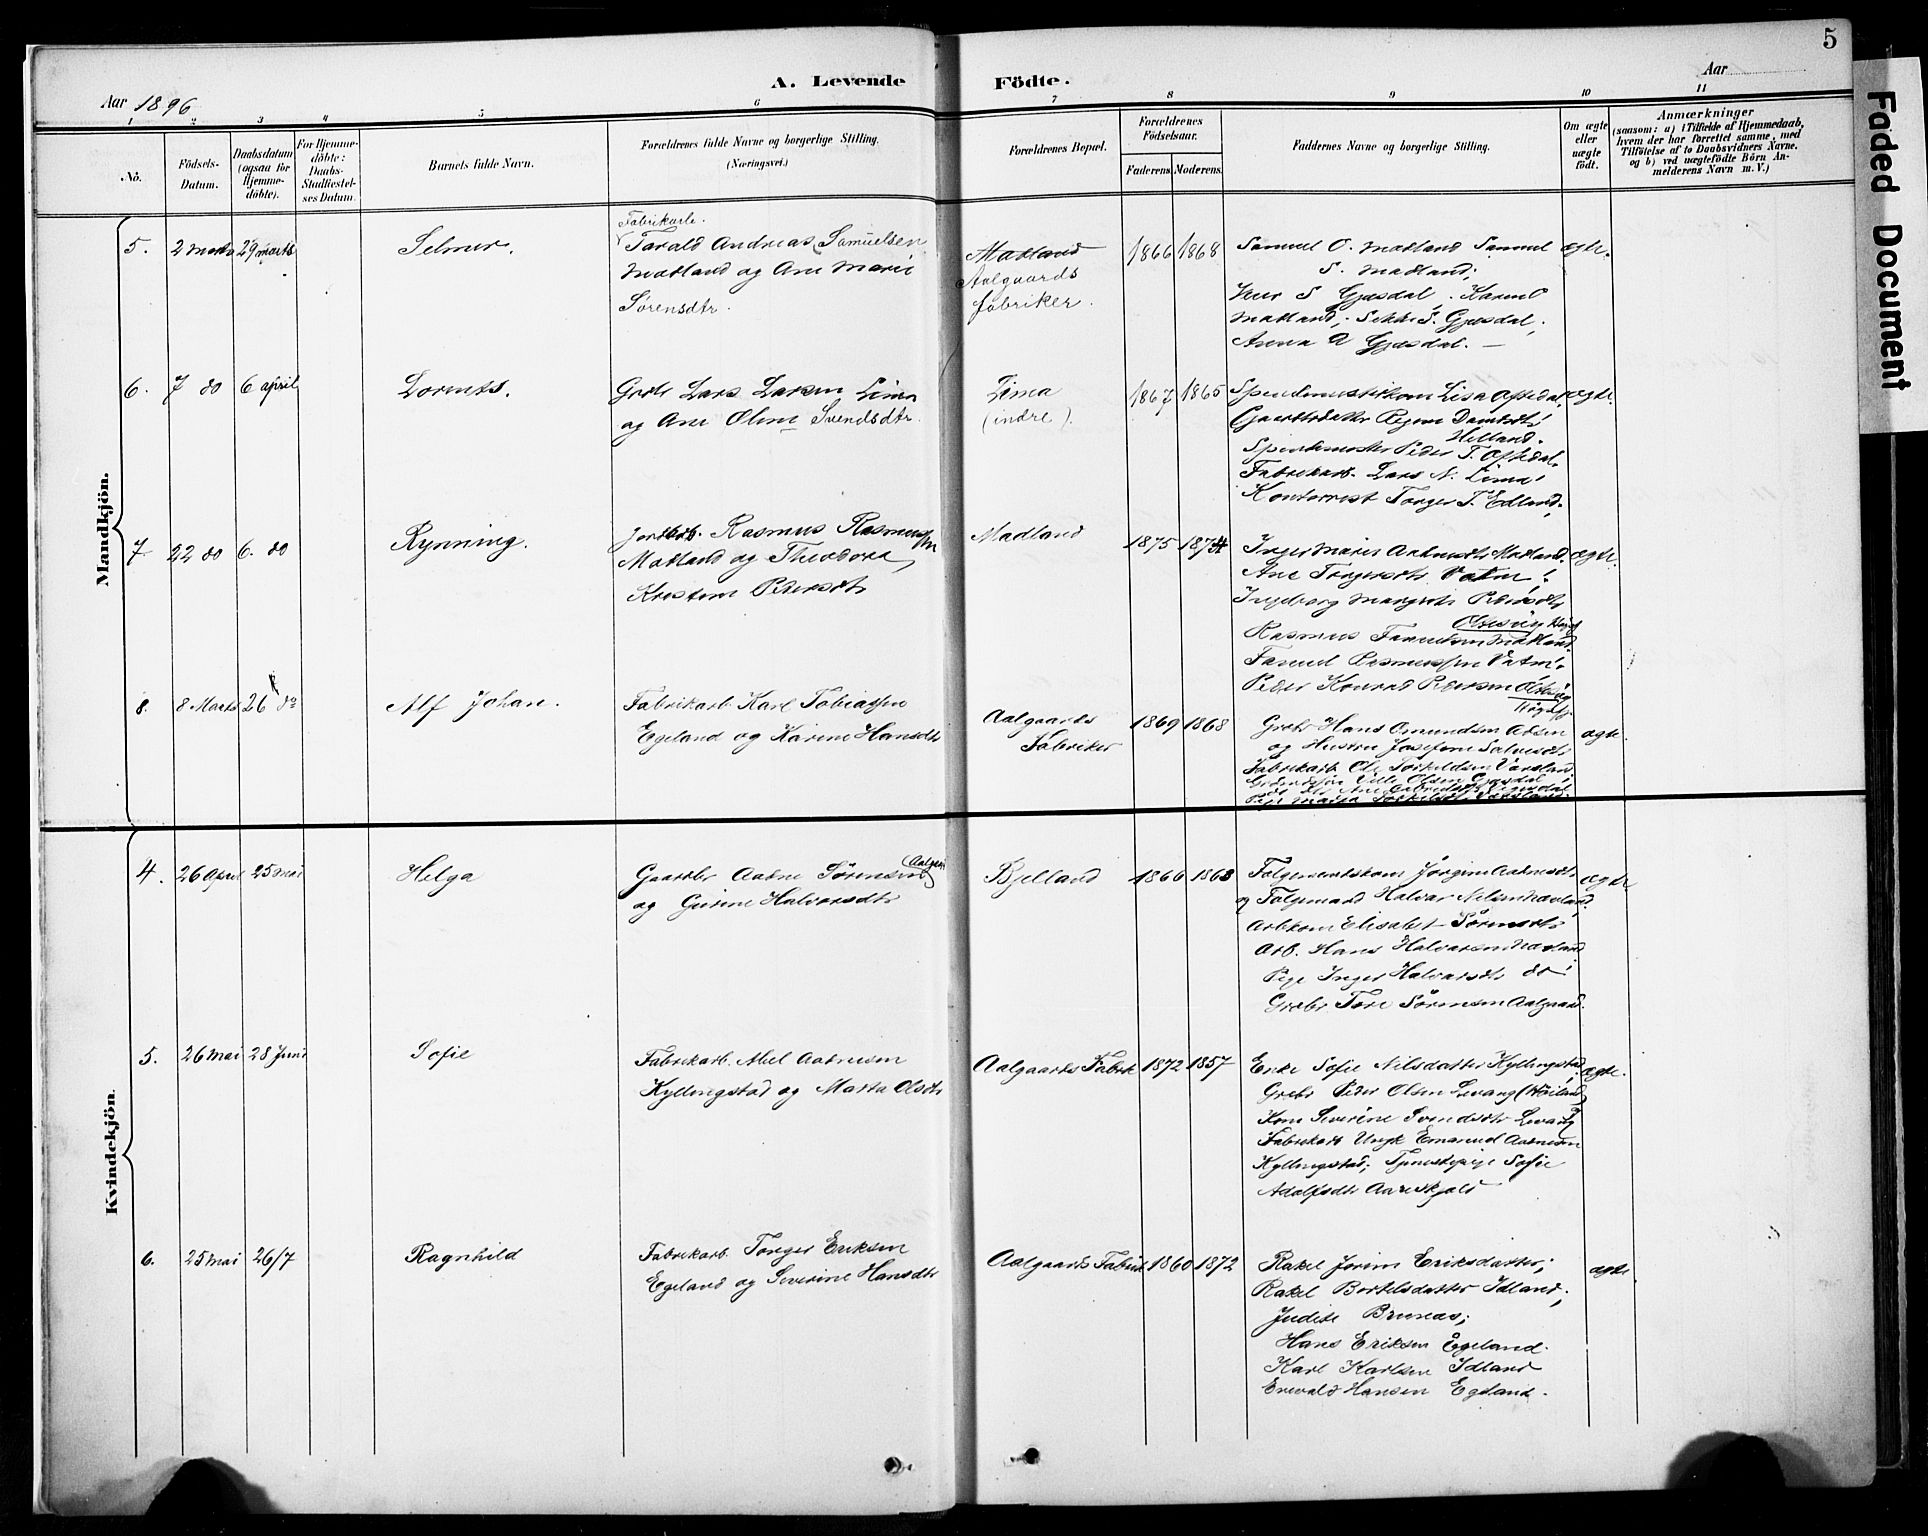 5
A. Levende Födte.
Aar 1896
Aar
1 2 3 4 5 6 7 8 9 10 11
No.
Födsels-
Datum.
Daabsdatum
(ogsaa for
Hjemme-
döbte).
For Hjemme-
döbte:
Daabs-
Stadfæstel-
ses Datum.
Barnets fulde Navn.
Forældrenes fulde Navne og borgerlige Stilling.
(Næringsvei.)
Forældrenes Bopæl.
Forældrenes
Födselsaar.
Faderens. Moderens.
Faddernes Navne og borgerlige Stilling.
Om ægte
eller
uægte
födt.
Anmærkninger
(saasom: a) i Tilfælde af Hjemmedaab,
hvem der har forrettet samme, med
Tilföielse af to Daabsvidners Navne,
og b) ved uægtefödte Börn An-
melderens Navn m. V.)
Mandkjön.
5. 2 marts 29 marts
Selmer.
Fabrikarb.
Tarald Andreas Samuelsen
Matland og Ane Marie
Sörensdtr.
Matland
Aalgaards
fabriker.
1866 1868
Samuel O. Matland Samuel
S. Matland;
S Gjesdal, Karen O
Matland; S. Gjesdal;
A Gjesdal. —
ægte.
6. 7 do 6 april
Lorents.
Grdb. Lars Larsen Lima
og Ane Oline Svendsdtr.
Lima
(indre).
1867 1865
Lisa Oftedal,
Helland.
Spindemester Peder T. Oftedal,
Fabrikarb. Lars N. Lima;
Kontorist Torger T. Edland;
ægte.
7 22 do 6. do
Rynning.
Jordbrb. Rasmus Rasmussen
Matland og Theodora
Kristine Pedersdtr
Madland
1875 1874
Inger Marie Matland.
Ane Torgersdtr Vatne;
Ingeborg Margrete Pedersdtr
Rasmus Matland.
Rasmussen Vatne.
Peder Konrad Pedersen
ægte.
8. 8 Marts 26 do
Alf Johan.
Fabrikarb. Karl Tobiassen
Egeland og Karine Hansdtr
Aalgaards
Fabriker
1869 1868
Grdbr Hans Omundsen
og Hustru Josefine
Fabrikarb. Ole Torkeldsen
Olsen Gjesdal
ægte.
Kvindekjön.
4. 26 April 25 mai
Helga
Gaardbr Aadne Sörensen
(Aalgaard)
og Gurine Halvorsdtr
Bjelland
1866 1868
Folgemandskone Jörgine Aadnesdtr
og Folgemand Halvor Nilsen
Arbkone Elisabet Sörensdtr
Arb. Hans Halvorsen
Pige Inger Halvorsdtr do;
Grdbr Tore Sörensen Aalgaard.
ægte
5. 26 mai 28 Juni
Sofie
Fabrikarb. Abel Aadnesen
Kyllingstad og Marta Olsdtr
Aalgaards Fabrik
1872 1857
Enke Sofie Nilsdatter Kyllingstad;
Grdbr Peder Olsen Levang (Höiland)
Kone Severine Svendsdtr Levang
Fabrikarb Ungk Emanuel Aadnesen
Kyllingstad; Tjenestepige Sofie
Adolfsdtr Aareskjold
ægte.
6. 25 mai 26/7
Ragnhild
Fabrikarb. Torger Eriksen
Egeland og Severine Hansdtr
Aalgaards Fabrik
1860 1872
Rakel Jorine Eriksdatter;
Rakel Bertelsdatter Idland;
Judite Bruneas;
Hans Eriksen Egeland.
Karl Karlsen Idland
Enevald Hansen Egeland.
ægte
Faded Document